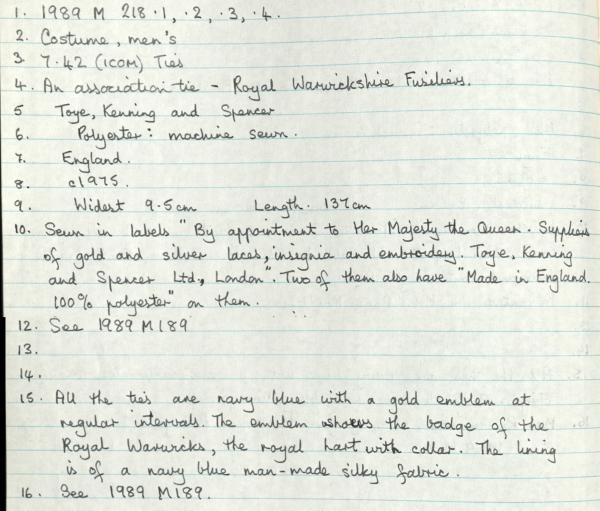 1. 1989 M 218.1, .2, .3, .4.
2. Costume, men's
3. 7.42 (ICOM) Ties
4. An association tie - Royal Warwickshire Fusiliers.
5 Toye, Kenning and Spencer
6. Polyester: machine sewn.
7. England.
8. c1975.
9. Widest 9.5cm Length. 137cm
10. Sewn in labels "By appointment to Her Majesty the Queen. Suppliers
of gold and silver laces, insignia and embroidery. Toye, Kenning
and Spencer Ltd., London". Two of them also have "Made in England.
100% polyester" on them.
12. See 1989 M189
13.
14.
15. All the ties are navy blue with a gold emblem at
regular intervals. The emblem shows the badge of the
Royal Warwicks, the royal hart with collar. The lining
is of a navy blue man-made silky fabric.
16. See 1989 M189.